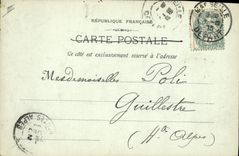 RÉPUBLIQUE FRANÇAISE
CARTE POSTALE
Ce côté est exclusivement réservé à l'adresse
Mesdemoiselles Poli
Guillestre
Htes Alpes
MARSEILLE